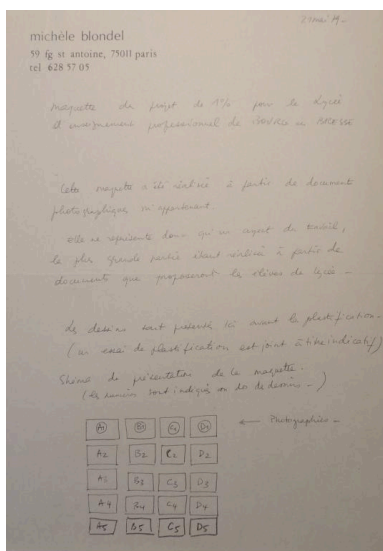 2 mai 19
michèle blondel
59 fg st antoine, 75011 paris
tel 628 57 05
maquette du projet de 1% pour le Lycée
d'enseignement professionnel de BRESSE
Cette maquette a été réalisée à partir de documents
photographiques m'appartenant.
elle ne représente donc qu'un aspect du travail,
la plus grande partie étant réalisée à partir de
documents que proposeront les élèves du lycée -
Les dessins sont présentés ici avant la plastification -
(un essai de plastification est joint à titre indicatif)
Shéma de présentation de la maquette.
(les numéros sont indiqués au dos des dessins -)
A1 B1 C1 D1 ← Photographies -
A2 B2 C2 D2
A3 B3 C3 D3
A4 B4 C4 D4
A5 B5 C5 D5